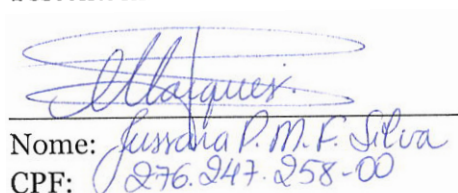 Marques.
Nome: Jussara P. M. F. Silva
CPF: 276.247.258-00